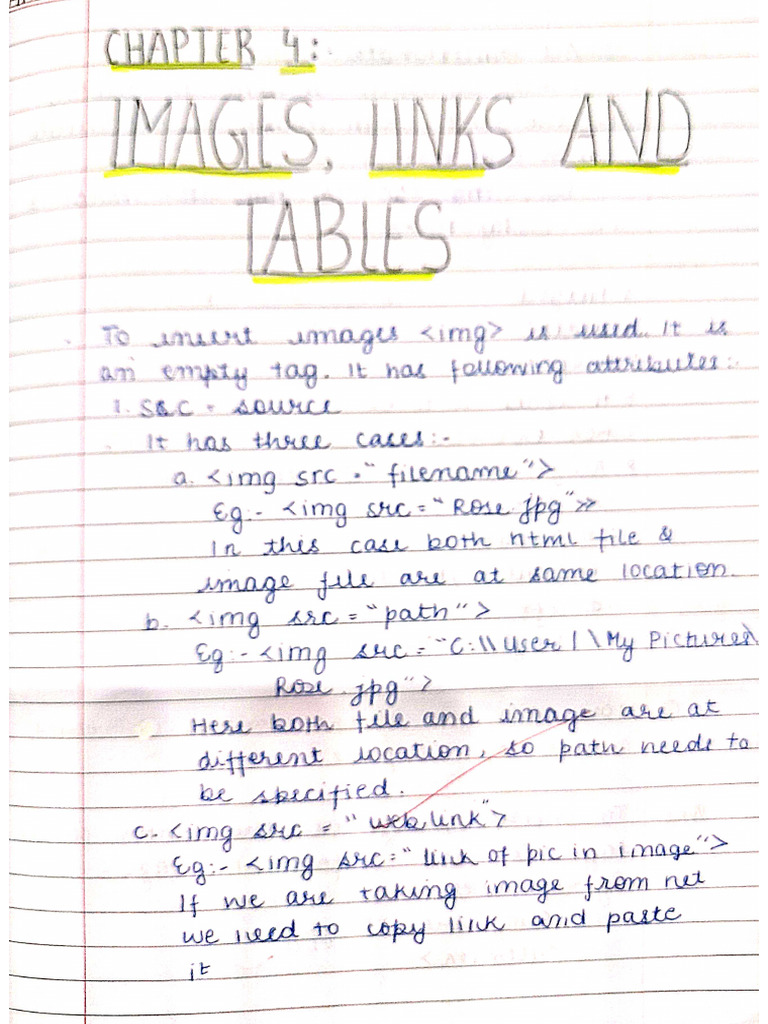 CHAPTER 4:
IMAGES, LINKS AND
TABLES
To insert images <img> is used. It is
an empty tag. It has following attributes:-
1. SRC = source
It has three cases:-
a. <img src = "filename">
Eg:- <img src = "Rose.jpg">>
In this case both html file &
image file are at same location.
b. <img src = "path">
Eg:- <img src = "C:\\User1\My Pictures\
Rose.jpg">
Here both file and image are at
different location, so path needs to
be specified.
c. <img src = "weblink">
Eg:- <img src = "link of pic in image">
If we are taking image from net
we need to copy link and paste
it